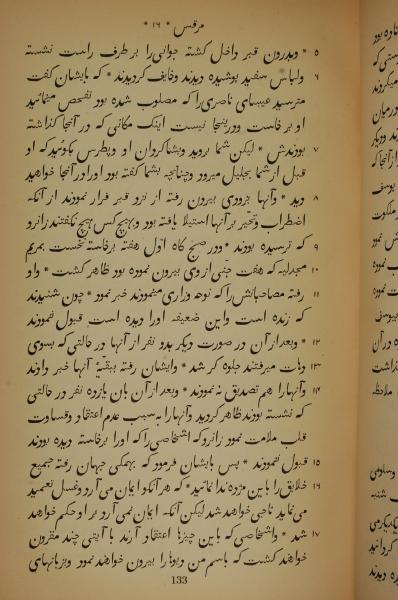 مرقس * ۱۶ *
۵ * وبدرون قبر داخل گشته جوانی را بر طرف راست نشسته
۶ ولباس سفید پوشیده دیدند وخایف گردیدند * که بایشان گفت
مترسید عیسای ناصری را که مصلوب شده بود تفحص مینمائید
او بر خاست ودر ینجا نیست اینک مکانی که در آنجا گذاشته
۷ بودندش * لیکن شما بروید وبشاگردان او وپطرس بگوئید که او
قبل از شما بجلیل میرود وچنانچه بشما گفته بود اورا در آنجا خواهید
۸ دید * وآنها بزودی بیرون رفته از نزد قبر فرار نمودند از آنکه
اضطراب وتحیر بر آنها استیلا یافته بود وبهیچکس هیچ نگفتند زانرو
۹ که ترسیده بودند * ودر صبح گاه اوّل هفته برخاسته نخست بمریم
۱۰ مجدلیه که هفت جنّی از وی بیرون نموده بود ظاهر گشت * واو
۱۱ رفته مصاحبانش را که نوحه وزاری مینمودند خبر نمود * چون شنیدند
که زنده است واین ضعیفه اورا دیده است قبول ننمودند
۱۲ * وبعد از آن در صورت دیگر بدو نفر از آنها در حالتی که بسوی
۱۳ دهات میرفتند جلوه گر شد * وایشان رفته ببقیّهٔ آنها خبر دادند
۱۴ وآنها را هم تصدیق نه نمودند * وبعد از آن بان یازده نفر در حالتی
که نشسته بودند ظاهر گردید وآنها را به سبب عدم اعتقاد وقساوت
قلب ملامت نمود زانرو که اشخاصی را که اورا برخاسته دیده بودند
۱۵ قبول ننمودند * پس بایشان فرمود که بهمگی جهان رفته جمیع
۱۶ خلایق را باین مژده ندا نمائید * که هر آنکو ایمان می آرد وغسل تعمید
می نماید ناجی خواهد شد لیکن آنکه ایمان نمی آرد بر او حکم خواهد
۱۷ شد * واشخاصی که باین چیزها اعتقاد آرند با آیتی چند مقرون
خواهند گشت که باسم من دیوها را بیرون خواهند نمود وبزبانهای
133